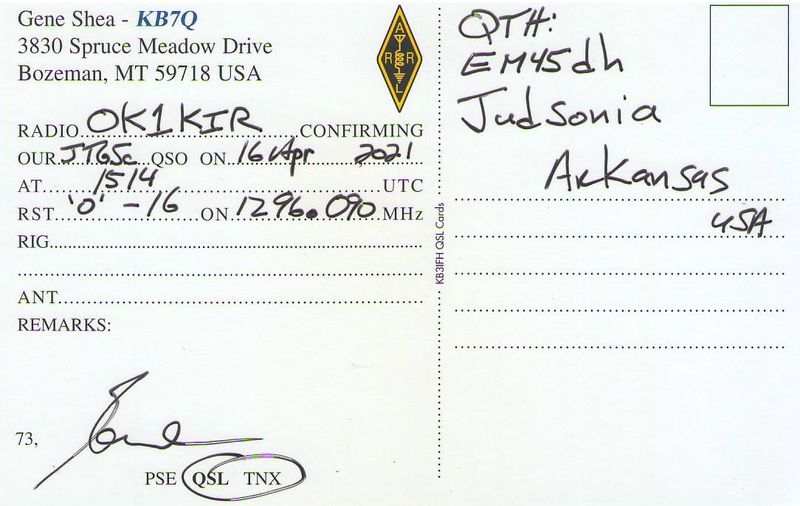 Gene Shea - KB7Q
3830 Spruce Meadow Drive
Bozeman, MT 59718 USA
A
R R
L
RADIO OK1KIR CONFIRMING
OUR JT65c QSO ON 16 Apr 2021
AT 1514 UTC
RST 'O' -16 ON 1296.090 MHz
RIG
ANT
REMARKS:
73, Gene
PSE QSL TNX
KB3IFH QSL Cards
QTH:
EM45dh
Judsonia
Arkansas
USA